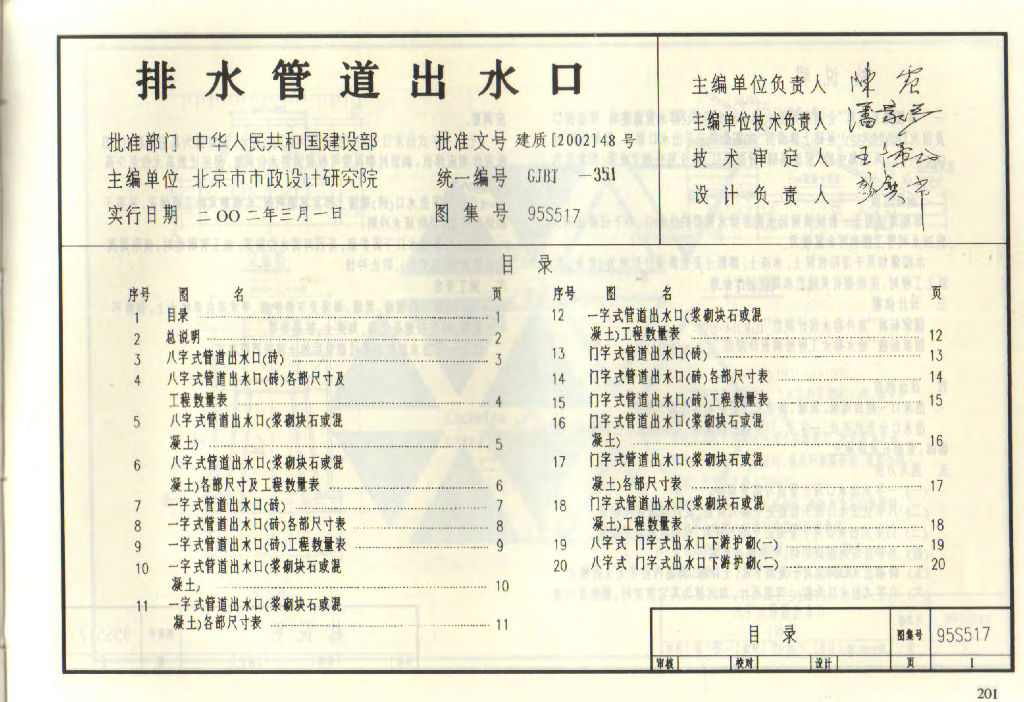 排水管道出水口
批准部门 中华人民共和国建设部 批准文号 建质[2002]48号
主编单位 北京市市政设计研究院 统一编号 GJBT -351
实行日期 二OO二年三月一日 图集号 95S517
主编单位负责人
主编单位技术负责人
技术审定人
设计负责人
目 录
序号 图 名 页
1 目录 1
2 总说明 2
3 八字式管道出水口(砖) 3
4 八字式管道出水口(砖)各部尺寸及
工程数量表 4
5 八字式管道出水口(浆砌块石或混
凝土) 5
6 八字式管道出水口(浆砌块石或混
凝土)各部尺寸及工程数量表 6
7 一字式管道出水口(砖) 7
8 一字式管道出水口(砖)各部尺寸表 8
9 一字式管道出水口(砖)工程数量表 9
10 一字式管道出水口(浆砌块石或混
凝土) 10
11 一字式管道出水口(浆砌块石或混
凝土)各部尺寸表 11
序号 图 名 页
12 一字式管道出水口(浆砌块石或混
凝土)工程数量表 12
13 门字式管道出水口(砖) 13
14 门字式管道出水口(砖)各部尺寸表 14
15 门字式管道出水口(砖)工程数量表 15
16 门字式管道出水口(浆砌块石或混
凝土) 16
17 门字式管道出水口(浆砌块石或混
凝土)各部尺寸表 17
18 门字式管道出水口(浆砌块石或混
凝土)工程数量表 18
19 八字式 门字式出水口下游护砌(一) 19
20 八字式 门字式出水口下游护砌(二) 20
目 录 图集号 95S517
审核 校对 设计 页 1
201